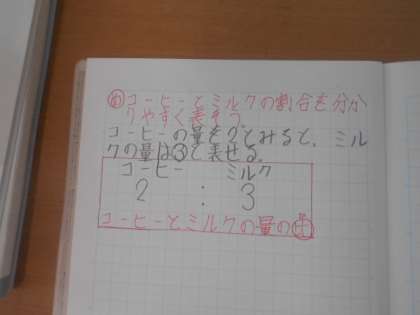 め コーヒーとミルクの割合を分か
りやすく表そう。
コーヒーの量を②とみると、ミル
クの量は③と表せる。
コーヒー ミルク
2 : 3
コーヒーとミルクの量の比